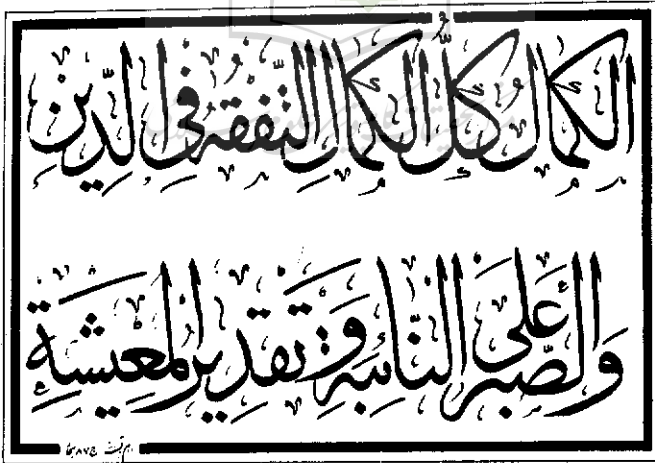 الكمالُ كُلُّ الكمالِ التَّفقهُ فِي الدِّينِ
وَالصَّبرُ عَلَى النَّائِبَةِ وَتقدِيرُ المَعِيشَةِ